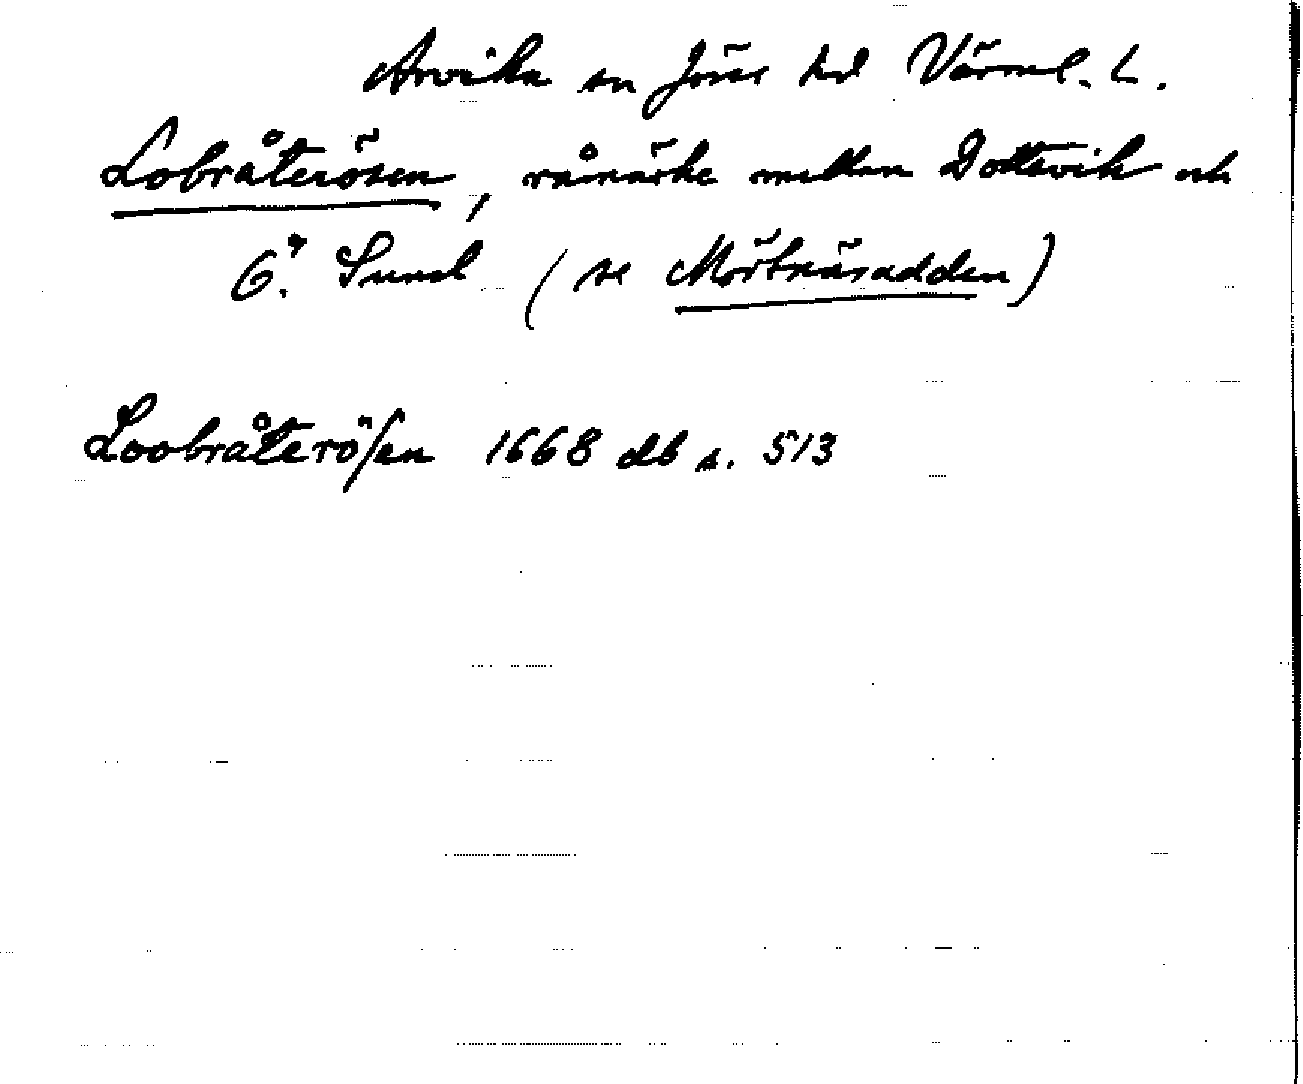 Arvika sn Jösse hd Värml. L.
Lobråterösen, råmärke mellan Dottevik och
G:a Sund (se Mörtnäsudden)
Loobråteröſen 1668 db s. 513